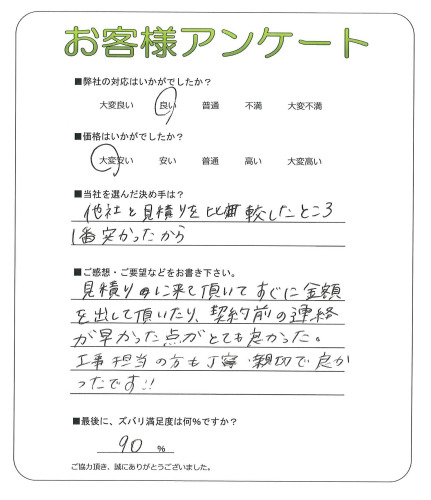 お客様アンケート
■弊社の対応はいかがでしたか？
大変良い 良い 普通 不満 大変不満
■価格はいかがでしたか？
大変安い 安い 普通 高い 大変高い
■当社を選んだ決め手は？
他社と見積りを比較したところ
1番安かったから
■ご感想・ご要望などをお書き下さい。
見積りに来て頂いてすぐに金額
を出して頂いたり、契約前の連絡
が早かった点がとても良かった。
工事担当の方も丁寧・親切で良か
ったです!!
■最後に、ズバリ満足度は何%ですか？
90 %
ご協力頂き、誠にありがとうございました。